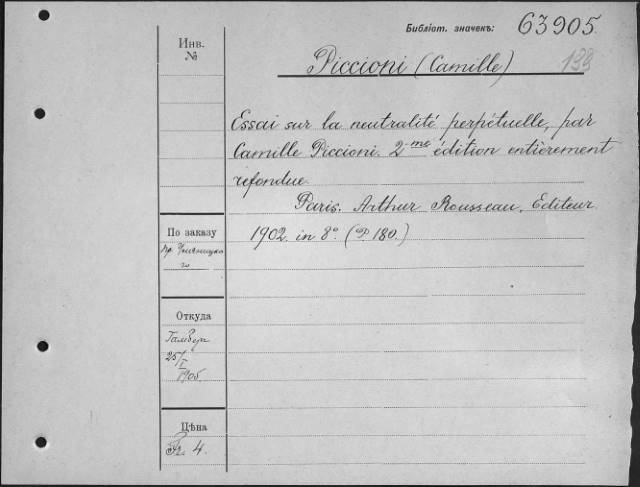 Библіот. значекъ: 63905
138
Инв.
№
Piccioni (Camille)
Essai sur la neutralité perpétuelle, par
Camille Piccioni. 2-me édition entièrement
refondue.
Paris. Arthur Rousseau, Editeur.
1902. in 8° (P. 180.)
По заказу
пр.
Откуда
25/I
1905.
Цѣна
Fr. 4.